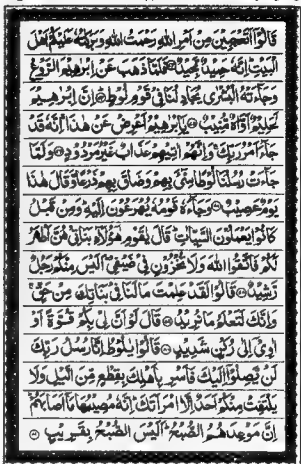 قَالُوٓا اَتَعْجَبِيْنَ مِنْ اَمْرِ اللّٰهِ رَحْمَتُ اللّٰهِ وَبَرَكٰتُهٗ عَلَيْكُمْ اَهْلَ
الْبَيْتِ اِنَّهٗ حَمِيْدٌ مَّجِيْدٌ فَلَمَّا ذَهَبَ عَنْ اِبْرٰهِيْمَ الرَّوْعُ
وَجَآءَتْهُ الْبُشْرٰى يُجَادِلُنَا فِيْ قَوْمِ لُوْطٍ اِنَّ اِبْرٰهِيْمَ
لَحَلِيْمٌ اَوَّاهٌ مُّنِيْبٌ يٰٓاِبْرٰهِيْمُ اَعْرِضْ عَنْ هٰذَا اِنَّهٗ قَدْ
جَآءَ اَمْرُ رَبِّكَ وَاِنَّهُمْ اٰتِيْهِمْ عَذَابٌ غَيْرُ مَرْدُوْدٍ وَلَمَّا
جَآءَتْ رُسُلُنَا لُوْطًا سِيْٓءَ بِهِمْ وَضَاقَ بِهِمْ ذَرْعًا وَّقَالَ هٰذَا
يَوْمٌ عَصِيْبٌ وَجَآءَهٗ قَوْمُهٗ يُهْرَعُوْنَ اِلَيْهِ وَمِنْ قَبْلُ
كَانُوْا يَعْمَلُوْنَ السَّيِّاٰتِ قَالَ يٰقَوْمِ هٰٓؤُلَآءِ بَنَاتِيْ هُنَّ اَطْهَرُ
لَكُمْ فَاتَّقُوا اللّٰهَ وَلَا تُخْزُوْنِ فِيْ ضَيْفِيْ اَلَيْسَ مِنْكُمْ رَجُلٌ
رَّشِيْدٌ قَالُوْا لَقَدْ عَلِمْتَ مَا لَنَا فِيْ بَنَاتِكَ مِنْ حَقٍّ
وَاِنَّكَ لَتَعْلَمُ مَا نُرِيْدُ قَالَ لَوْ اَنَّ لِيْ بِكُمْ قُوَّةً اَوْ
اٰوِيْٓ اِلٰى رُكْنٍ شَدِيْدٍ قَالُوْا يٰلُوْطُ اِنَّا رُسُلُ رَبِّكَ
لَنْ يَّصِلُوْٓا اِلَيْكَ فَاَسْرِ بِاَهْلِكَ بِقِطْعٍ مِّنَ الَّيْلِ وَلَا
يَلْتَفِتْ مِنْكُمْ اَحَدٌ اِلَّا امْرَاَتَكَ اِنَّهٗ مُصِيْبُهَا مَآ اَصَابَهُمْ
اِنَّ مَوْعِدَهُمُ الصُّبْحُ اَلَيْسَ الصُّبْحُ بِقَرِيْبٍ